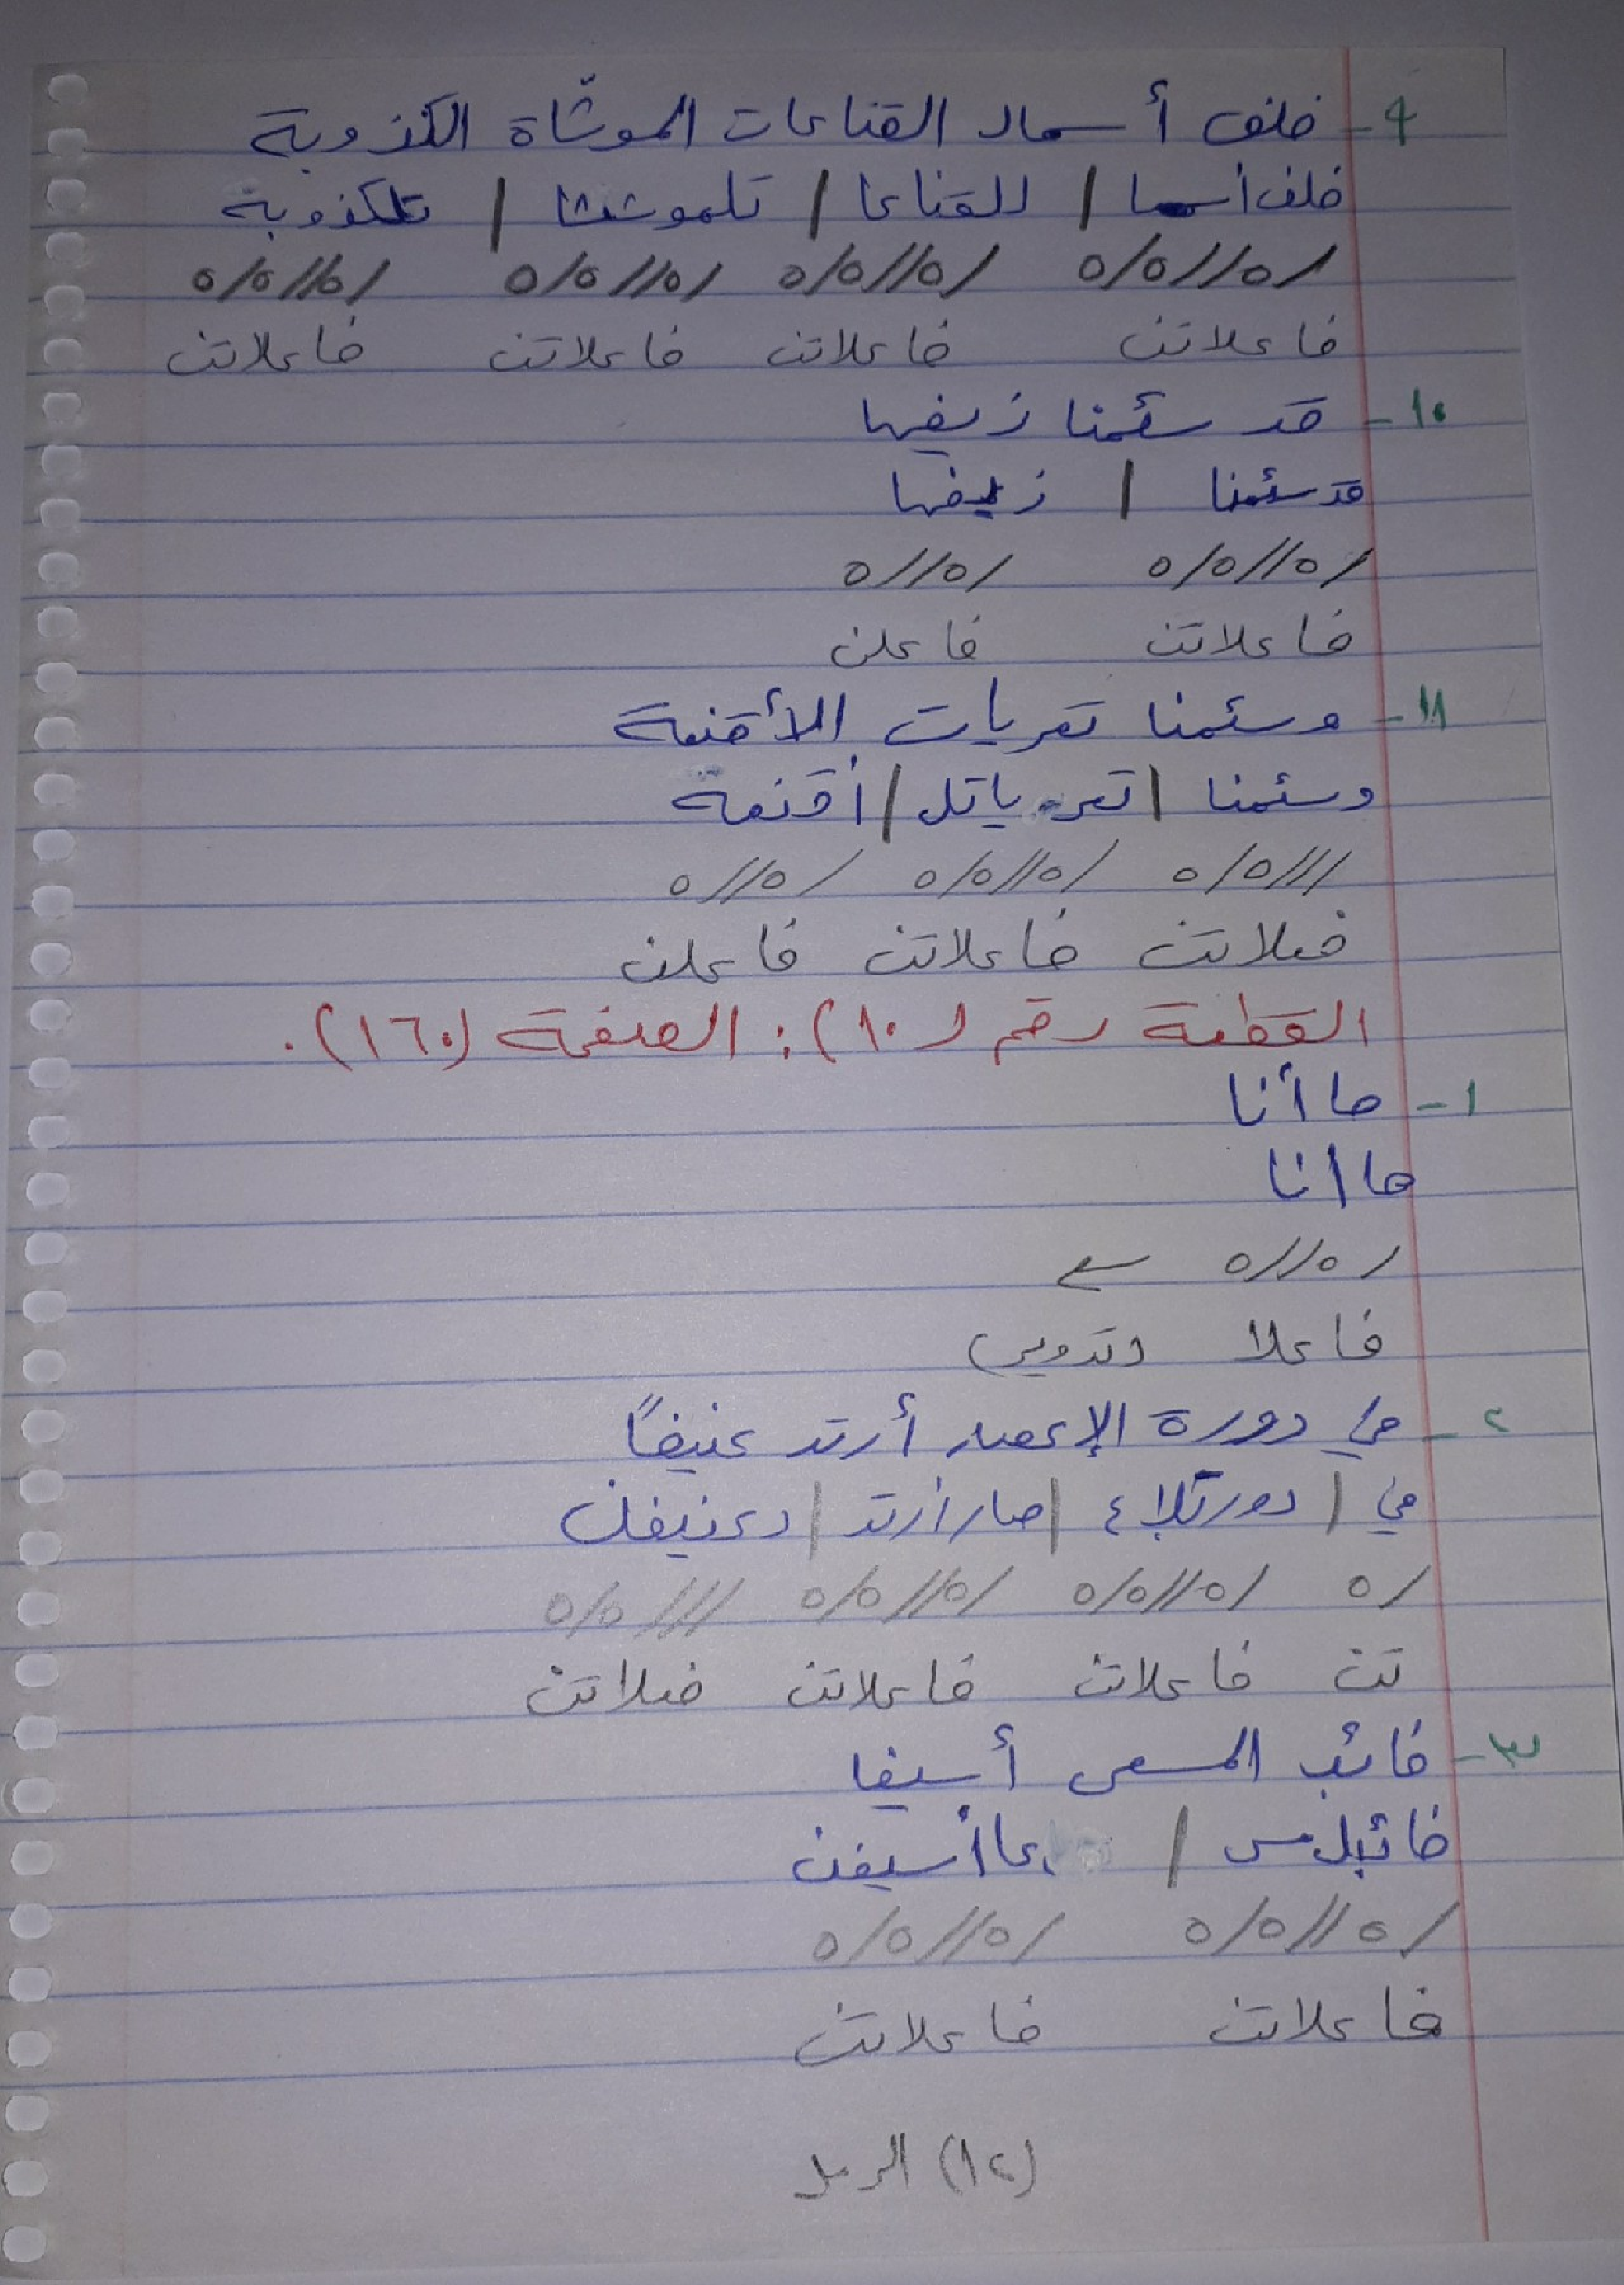 ٩- خلف أسمال القناعات الموشّاة الكذوبة
خلف أسما / للقناعا / تلموششا / تلكذوبة
/ه//ه/ه /ه//ه/ه /ه//ه/ه /ه//ه/ه
فاعلاتن فاعلاتن فاعلاتن فاعلاتن
١٠- قد سئمنا زيفها
قد سئمنا / زيفها
/ه//ه/ه /ه//ه
فاعلاتن فاعلن
١١- وسئمنا تعريات الأقنعة
وسئمنا / تعر ياتل / أقنعة
///ه/ه /ه//ه/ه /ه//ه
فعلاتن فاعلاتن فاعلن
القطعة رقم (١٠): الصفحة (١٦٠).
١- ها أنا
ها انا
/ه//ه
فاعلا (تدوير)
٢- في دورة الإعصار أرتد عنيفاً
في / دورتلإع / صار أرتد / دعنيفن
/ه /ه//ه/ه /ه//ه/ه ///ه/ه
تن فاعلاتن فاعلاتن فعلاتن
٣- خائب المسعى أسيفا
خائبل مس / عا أسيفن
/ه//ه/ه /ه//ه/ه
فاعلاتن فاعلاتن
(١٢) الرمل